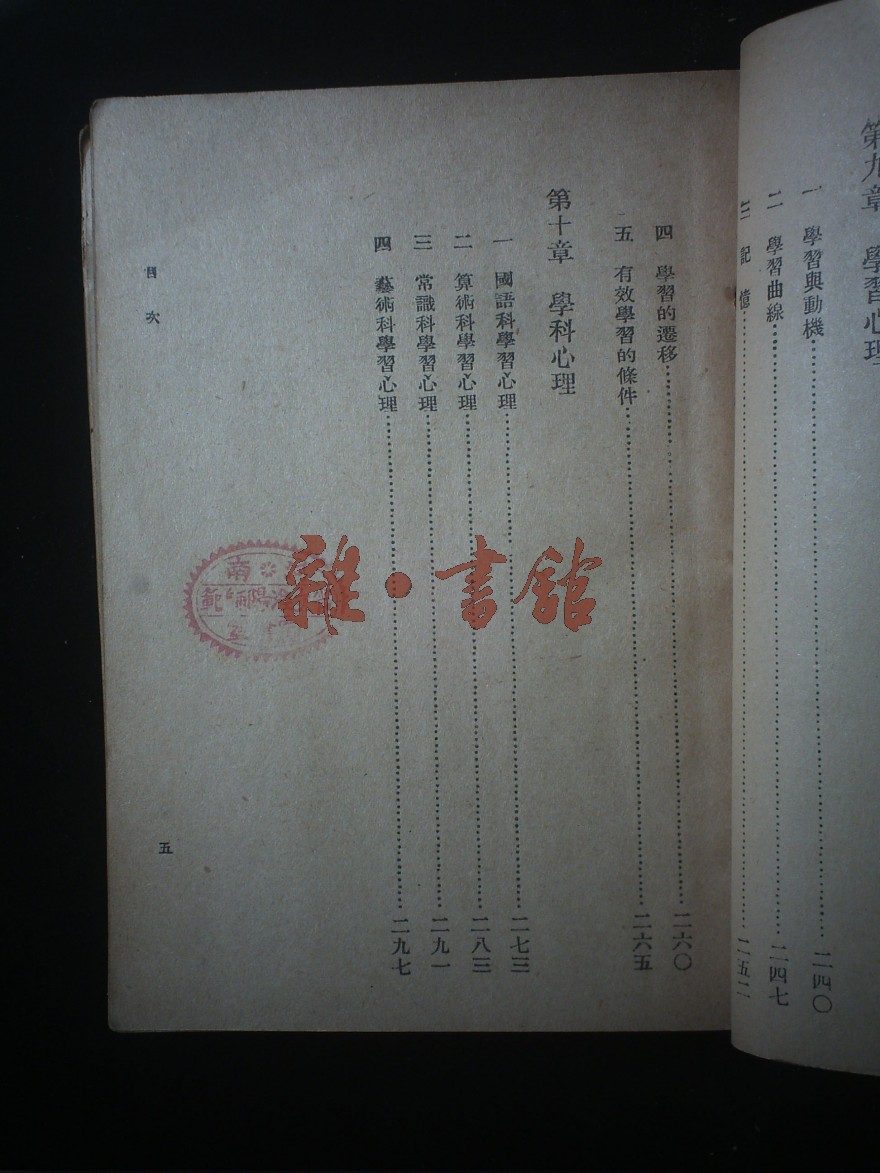 第九章　學習心理
一　學習與動機……二四〇
二　學習曲線……二四七
三　記憶……二五二
四　學習的遷移……二六〇
五　有效學習的條件……二六五
第十章　學科心理
一　國語科學習心理……二七三
二　算術科學習心理……二八三
三　常識科學習心理……二九一
四　藝術科學習心理……二九七
目次
五
雜·書館
南
範師陽